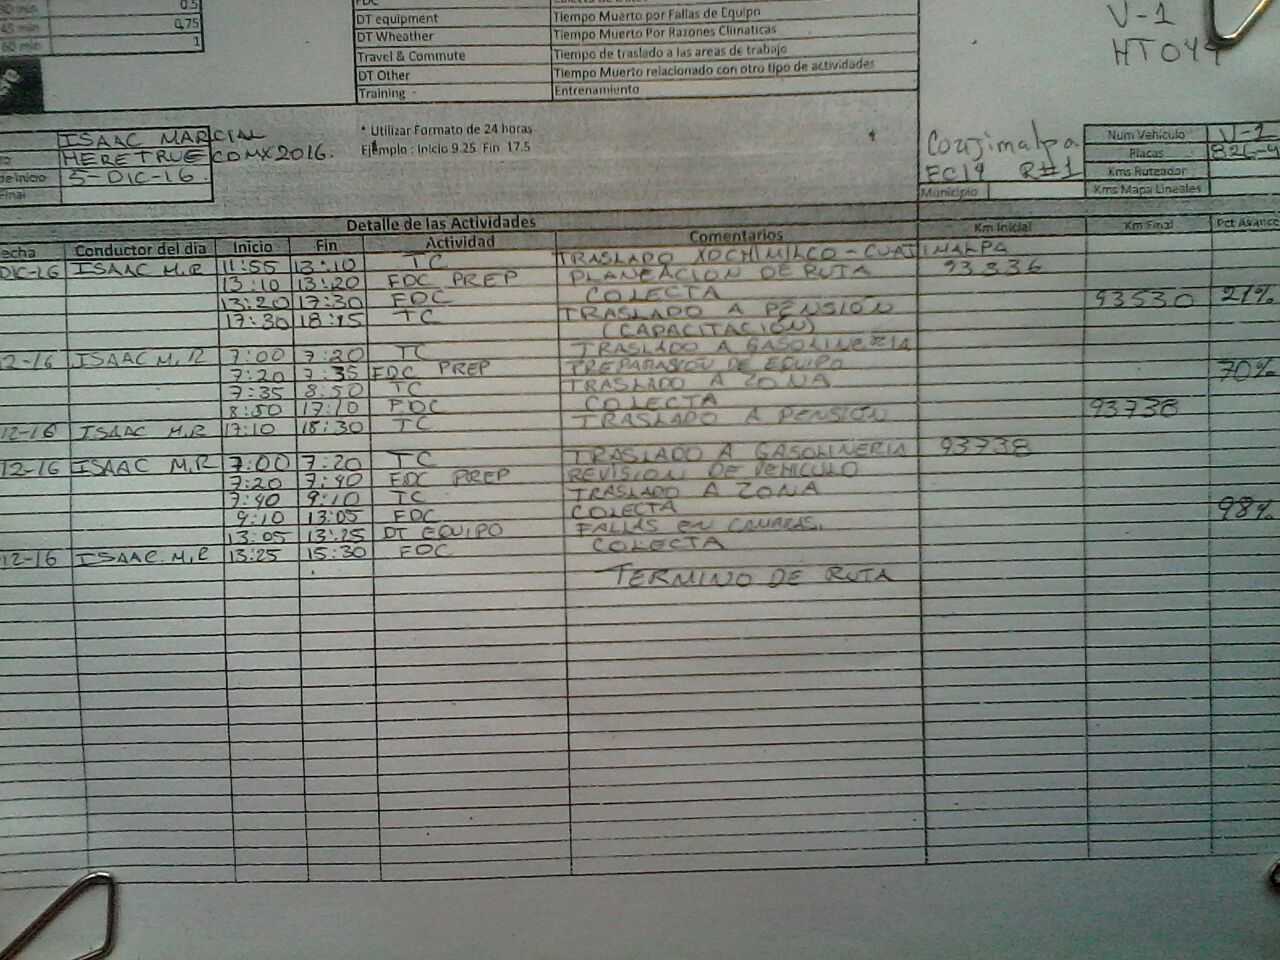 30 min 0.5
45 min 0.75
60 min 1
FDC
DT equipment Tiempo Muerto por Fallas de Equipo
DT Wheather Tiempo Muerto Por Razones Climaticas
Travel & Commute Tiempo de traslado a las areas de trabajo
DT Other Tiempo Muerto relacionado con otro tipo de actividades
Training Entrenamiento
V-1
HT044
ISAAC MARCIAL
HERETRUE CDMX2016.
de Inicio 5-DIC-16.
Final
* Utilizar Formato de 24 horas
Ejemplo : Inicio 9.25 Fin 17.5
Coajimalpa
EC14 R#1
Municipio
Num Vehiculo V-1
Placas 826-
Kms Ruteador
Kms Mapa Lineales
Detalle de las Actividades
echa Conductor del dia Inicio Fin Actividad Comentarios Km Inicial Km Final Pct Avance
DIC-16 ISAAC M.R 11:55 13:10 TC TRASLADO XOCHIMILCO-CUAJIMALPA
13:10 13:20 FDC PREP PLANEACION DE RUTA 93336
13:20 17:30 FDC COLECTA 93530 21%
17:30 18:15 TC TRASLADO A PENSION
(CAPACITACIÓN)
12-16 ISAAC M.R 7:00 7:20 TC TRASLADO A GASOLINERIA
7:20 7:35 FDC PREP PREPARASION DE EQUIPO 70%
7:35 8:50 TC TRASLADO A ZONA
8:50 17:10 FDC COLECTA 93738
12-16 ISAAC M.R 17:10 18:30 TC TRASLADO A PENSION
12-16 ISAAC M.R 7:00 7:20 TC TRASLADO A GASOLINERIA 93738
7:20 7:40 FDC PREP REVISION DE VEHICULO
7:40 9:10 TC TRASLADO A ZONA
9:10 13:05 FDC COLECTA 98%
13:05 13:25 DT EQUIPO FALLAS EN CAMARAS.
12-16 ISAAC M.R 13:25 15:30 FDC COLECTA
TERMINO DE RUTA